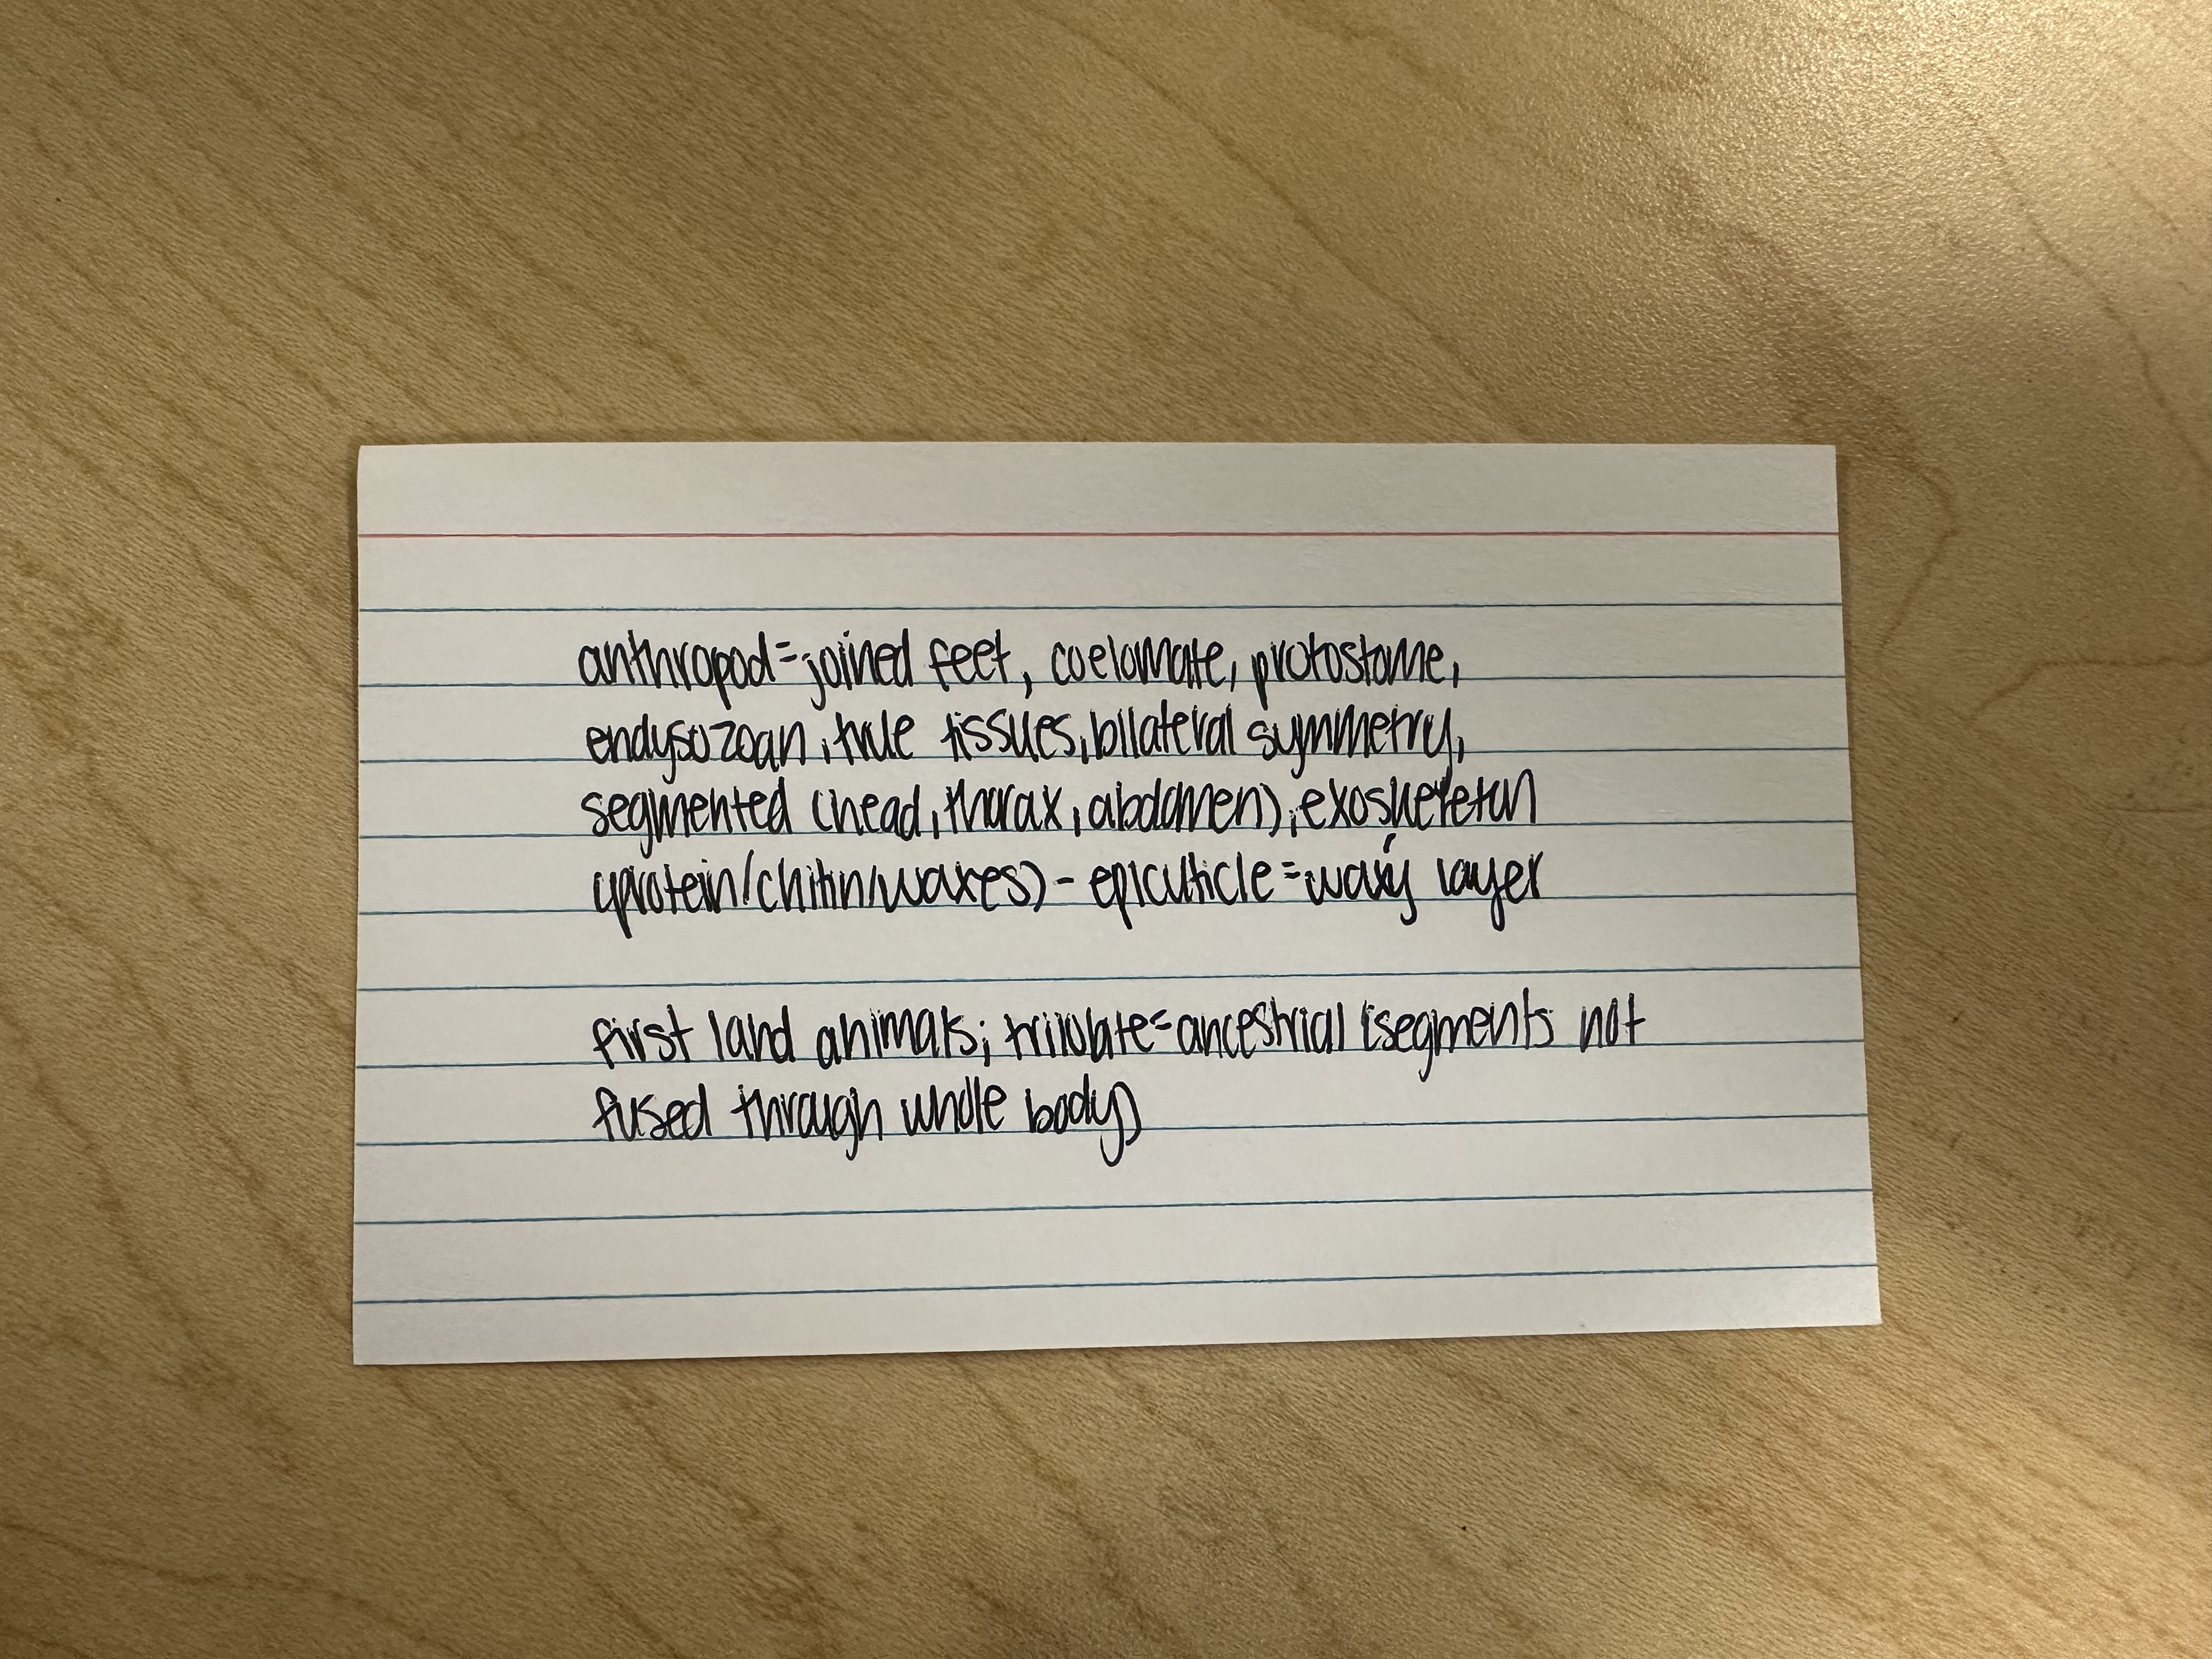 anthropod=joined feet, coelomate, protostome,
endysozoan, true tissues, bilateral symmetry,
segmented (head, thorax, abdomen), exoskeleton
(protein/chitin/waxes) - epicuticle=waxy layer
first land animals; trilobate=ancestrial (segments not
fused through whole body)